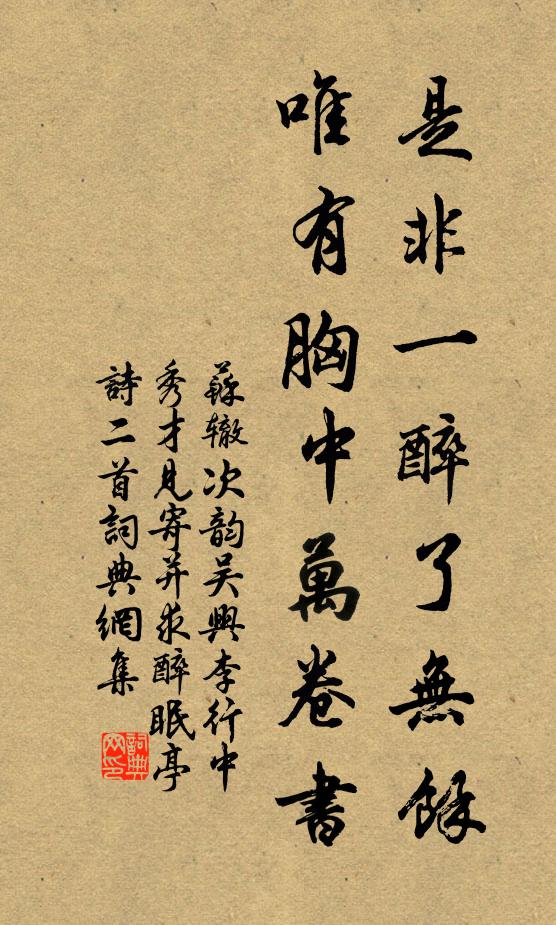 是非一醉了無餘
唯有胸中萬卷書
蘇辙次韵吴興李行中
秀才見寄并求醉眠亭
詩二首詞典網集
詞典网印